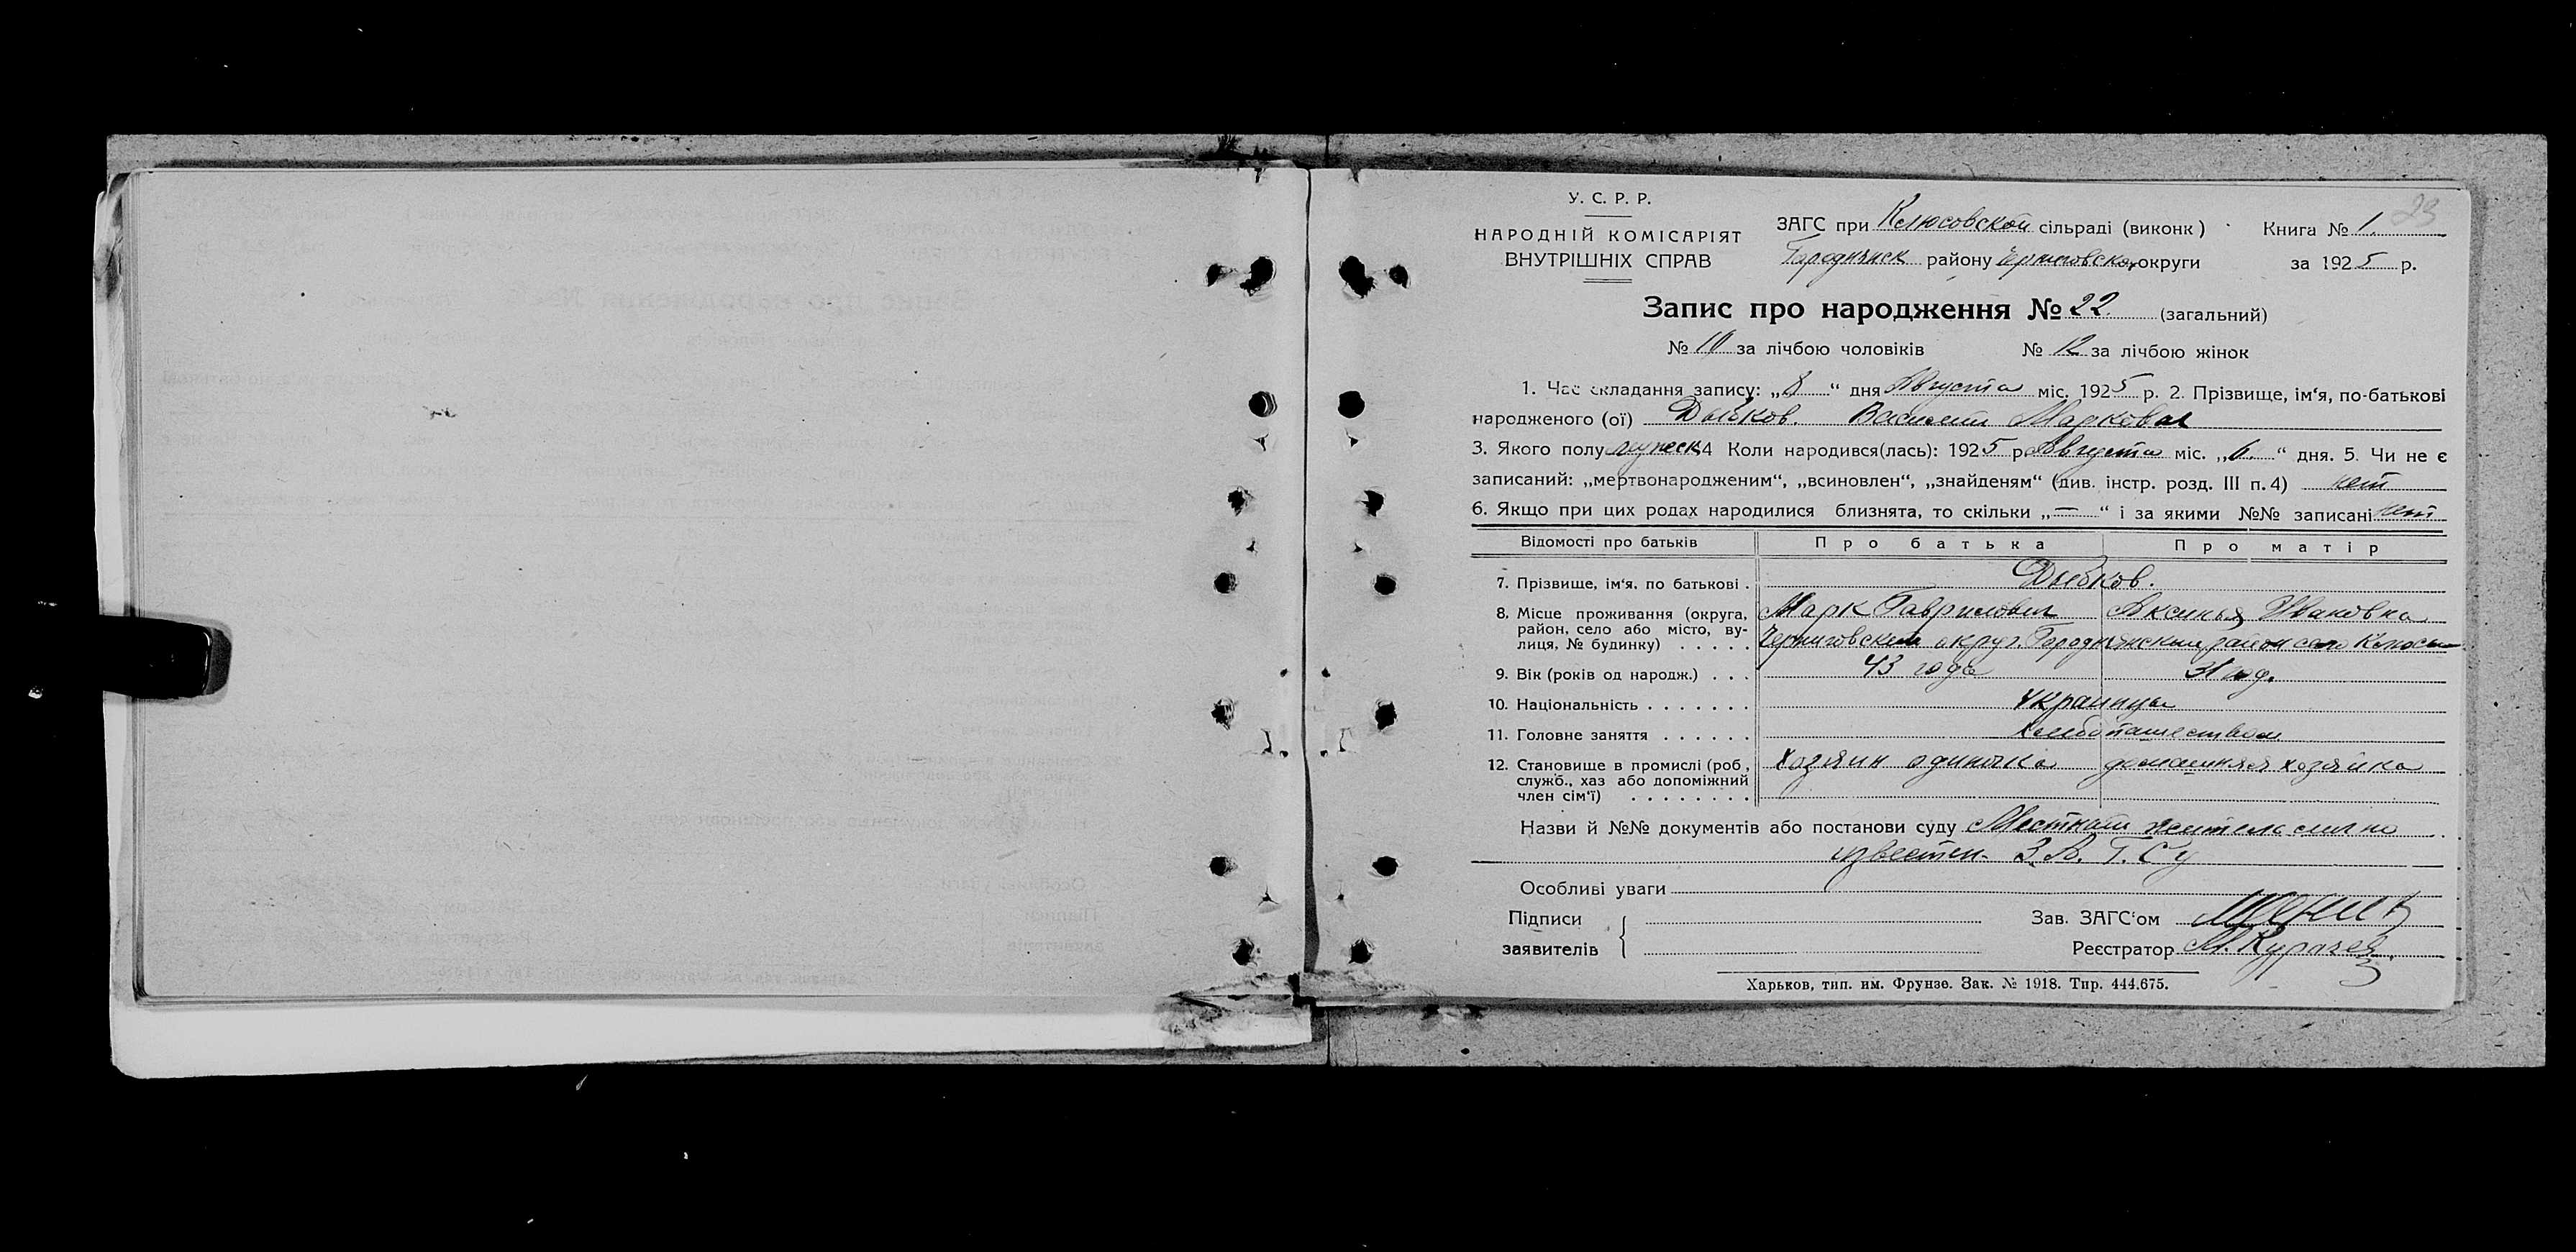 23
У. С. Р. Р.
НАРОДНІЙ КОМІСАРІЯТ
ВНУТРІШНІХ СПРАВ
ЗАГС при Клюсовской сільраді (виконк) Книга № 1.
Городнянск району Черниговской округи за 1925 р.
Запис про народження № 22. (загальний)
№ 10 за лічбою чоловіків № 12 за лічбою жінок
1. Час складання запису: „8“ дня Августа міс. 1925 р. 2. Прізвище, ім‘я, по-батькові
народженого (ої) Дыбков. Василий Маркович
3. Якого полу мужеск 4 Коли народився(лась): 1925 р Августа міс. „6.“ дня. 5. Чи не є
записаний: „мертвонародженим“, „всиновлен“, „знайденям“ (див. інстр. розд. III п. 4) нет
6. Якщо при цих родах народилися близнята, то скільки „—“ і за якими №№ записані нет
Відомості про батьків Про батька Про матір
7. Прізвище, ім‘я, по батькові . Дыбков.
8. Місце проживання (округа, Марк Гаврилович Аксинья Ивановна
район, село або місто, ву-
лиця, № будинку) . . . . . Черниговский округ. Городнянский район село Клюсы
9. Вік (років од народж.) . . . 43 года 31 год.
10. Національність . . . . . . . Украинцы
11. Головне заняття . . . . . . Хлебопашеством
12. Становище в промислі (роб, Хозяин одиночка домашняя хозяйка
служб., хаз або допоміжний
член сім‘ї) . . . . . . . .
Назви й №№ документів або постанови суду Местный житель лично
известен. З. А. Г. Су
Особливі уваги
Підписи Зав. ЗАГС‘ом
заявителів Реєстратор М.
Харьков, тип. им. Фрунзе. Зак. № 1918. Тир. 444.675.